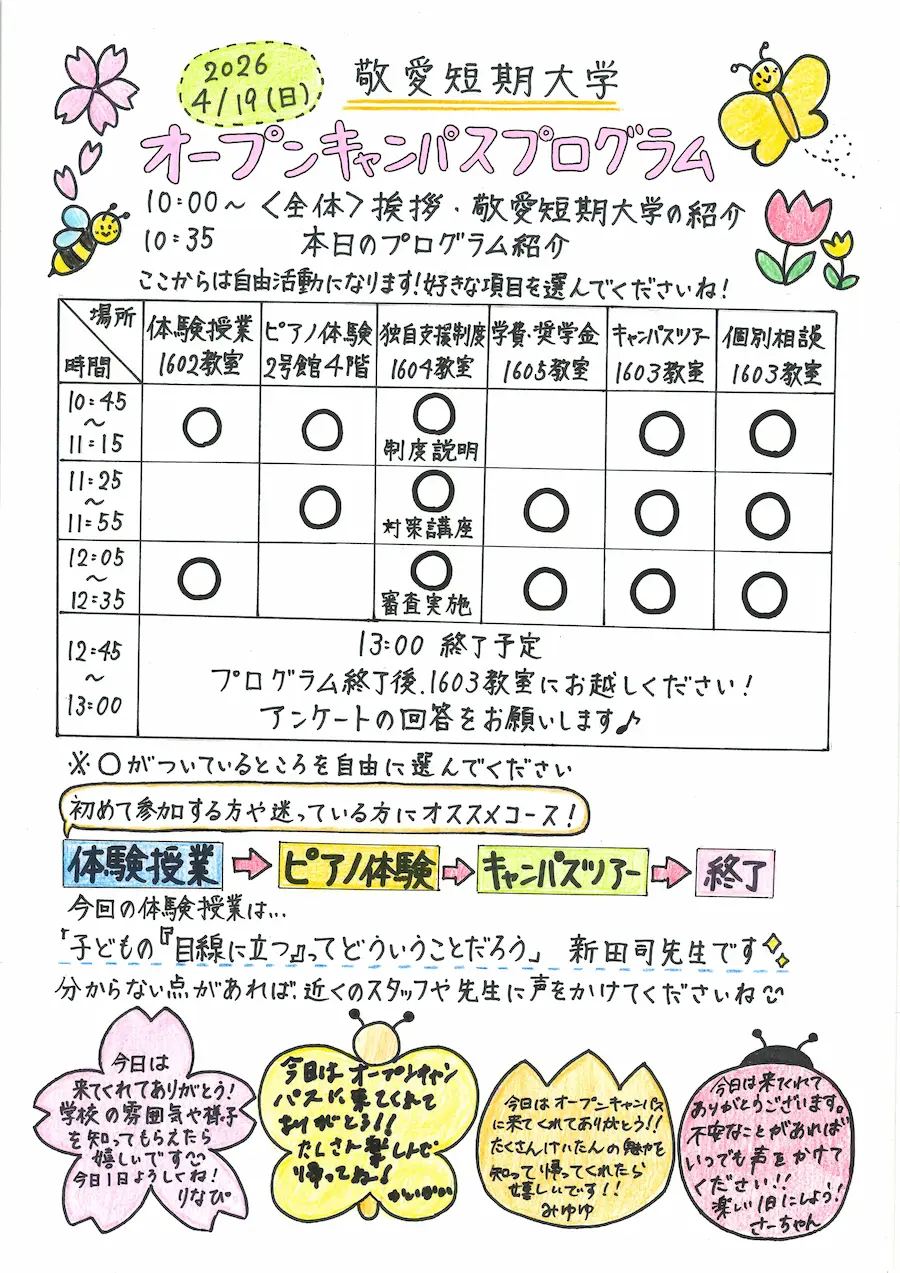 2026
4/19(日)
敬愛短期大学
オープンキャンパスプログラム
10:00~〈全体〉挨拶・敬愛短期大学の紹介
10:35 本日のプログラム紹介
ここからは自由活動になります!好きな項目を選んでくださいね!
場所
時間
体験授業 1602教室
ピアノ体験 2号館4階
独自支援制度 1604教室
学費・奨学金 1605教室
キャンパスツアー 1603教室
個別相談 1603教室
10:45~11:15 〇 〇 〇制度説明 〇 〇
11:25~11:55 〇 〇対策講座 〇 〇 〇
12:05~12:35 〇 〇審査実施 〇 〇 〇
12:45~13:00
13:00 終了予定
プログラム終了後、1603教室にお越しください!
アンケートの回答をお願いします♪
※〇がついているところを自由に選んでください
初めて参加する方や迷っている方にオススメコース!
体験授業→ピアノ体験→キャンパスツアー→終了
今回の体験授業は…
「子どもの『目線に立つ』ってどういうことだろう」 新田司先生です
分からない点があれば、近くのスタッフや先生に声をかけてくださいね
今日は
来てくれてありがとう!
学校の雰囲気や様子
を知ってもらえたら
嬉しいです
今日1日ようしくね!
りなぴ
今日はオープンキャン
パスに来てくれて
ありがとう!!
たくさん楽しんで
帰ってね!
今日はオープンキャンパス
に来てくれてありがとう!!
たくさんけいたんの魅力を
知って帰ってくれたら
嬉しいです!!
みゆゆ
今日は来てくれて
ありがとうございます。
不安なことがあれば
いつでも声をかけて
ください!!
楽しい1日にしよう!
さーちゃん